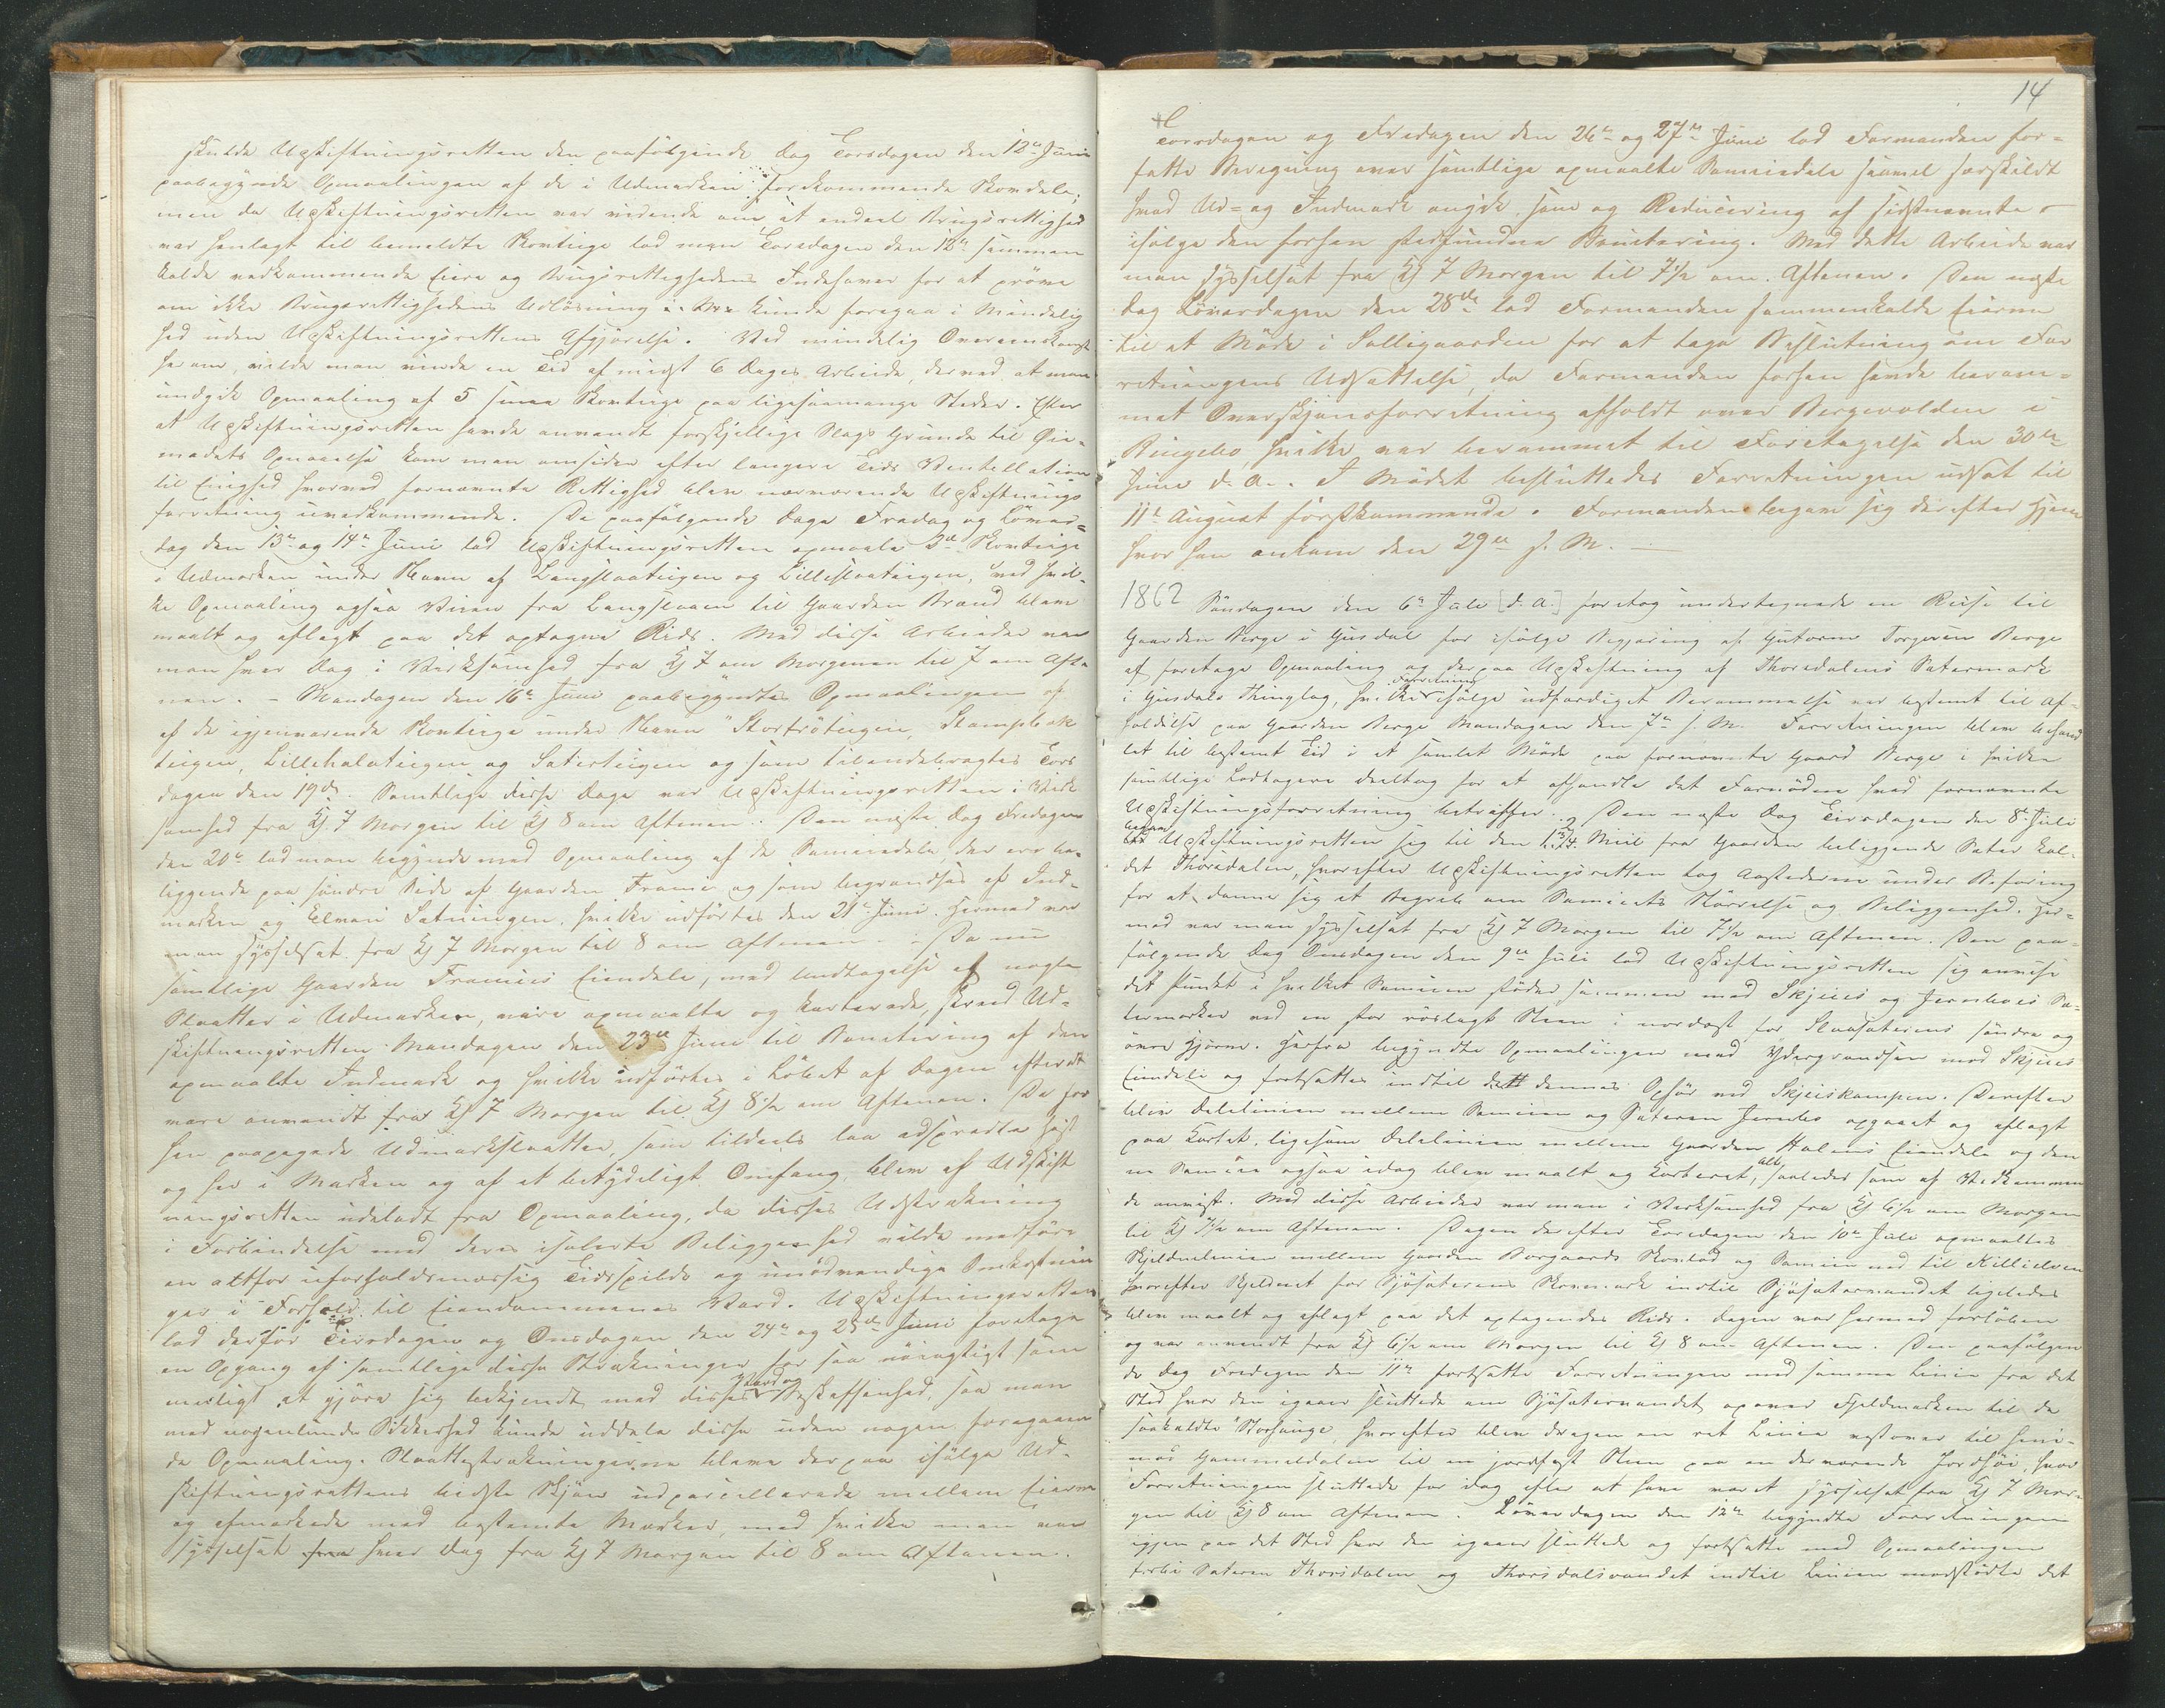 skulde Udskiftningsretten den paafølgende Dag Torsdagen den 12te Juni
paabegynde Opmaalingen af de i Udmarken forekommende Skovdele;
men da Udskiftningsretten var vidende om at endeel Brugsrettighed
var henlagt til bemeldte Skovteige lod man Torsdagen den 12te sammen
kalde vedkommende Eiere og Brugsrettighedens Indehaver for at prøve
om ikke Brugsrettighedens Udløsning kunde foregaa i Mindelig
hed uden Udskiftningsrettens Afgjørelse. Ved mindelig Overenskomst
herom, vilde man vinde en Tid af mindst 6 Dages Arbeide, derved at man
undgik Opmaaling af 5 smaa Skovteige paa ligesaamange Steder. Efter
at Udskiftningsretten havde anvendt forskjellige Slags Grunde til Øie-
medets Opnaaelse kom man omsider efter længere Tids Ventellation
til Enighed hvorved fornævnte Rettighed blev nærværende Udskiftnings
forretning uvedkommende. De paafølgende Dage Fredag og Løver=
dag den 13de og 14de Juni lod Udskiftningsretten opmaale 3de Skovteige
i Udmarken under Navn af Langslaateigen og Lilleslaateigen, ved hvil-
ke Opmaaling ogsaa Veien fra Langslaaen til Gaarden Brand blev
maalt og aflagt paa det optagne Rids. Med disse Arbeider var
man hver Dag i Virksomhed fra Kl 7 om Morgenen til 7 om Afte
nen. - Mandagen den 16de Juni paabegyndtes Opmaalingen af
af de igjenværende Skovteige under Navn "Storrøteigen, Stampebæk
teigen, Lillehaleteigen og Saterteigen og som tilendebragtes Tors
dagen den 19de. Samtlige disse Dage var Udskiftningsretten i Virk
somhed fra Kl. 7 Morgen til Kl 8 om Aftenen. Den næste Dag Fredagen
den 20de lod man begynde med Opmaaling af de Sameiedele der ere be-
liggende paa søndre Side af Gaarden Framie og som begrændses af Ind-
marken og Elven Sætningen. hvilke udførtes den 21de Juni. Hermed var
man sysselsat fra Kl 7 Morgen til 8 om Aftenen. - Da nu
samtlige Gaarden Framies Eiendele, med Undtagelse af nogle
Slaatter i Udmarken, være opmaalte og karterede, skred Ud-
skiftningsretten Mandagen den 23de Juni til Bonitering af den
opmaalte Indmark og hvilke udførtes i Løbet af Dagen efter at
være anvendt fra Kl 7 Morgen til Kl 8½ om Aftenen. De før
hen paapegede Udmarkslaatter, som tildeels laa adspredte hist
og her i Marken og af et betydeligt Omfang, blev af Udskift
ningsretten udeladt fra Opmaaling, da disses Udstrækning
i Forbindelse med deres isolerte Beliggenhed vilde medføre
en altfor uforholdsmæssig Tidsspilde og unødvendige Omkostnin
ger i Forhold til Eiendommenes Værd. Udskiftningsretten
lod derfor Tirsdagen og Onsdagen den 24de og 25de Juni foretage
en Opgang af samtlige disse Strækninger for saa nøiagtigt som
muligt at gjøre sig bekjendt med disses Værd og Beskaffenhed, saa man
med nogenlunde Sikkerhed kunde uddele disse uden nogen foregaaen
de Opmaaling. Slaattestrækningerne bleve derpaa ifølge Ud-
skiftningsrettens bedste Skjøn udparcellerede mellem Eierne
og afmærkede med bestemte Mærker, med hvilke man var
sysselsat fra hver Dag fra Kl 7 Morgen til 8 om Aftenen.
14
Torsdagen og Fredagen den 26de og 27de Juni lod Formanden for=
fatte Beregning over samtlige opmaalte Sameiedele saavel særskildt
hvad Ud= og Indmark angik, som og Reducering af sidstnævnte
ifølge den forhen stedfundne Bonitering. Med dette Arbeide var
man sysselsat fra Kl 7 Morgen til 7½ om Aftenen. Den næste
Dag Løverdagen den 28de lod Formanden sammenkalde Eierne
til et Møde i Solligaarden for at tage Beslutning om For
retningens Udsættelse, da Formanden forhen havde beram=
met Overskjønsforretning afholdt over Bergevolden i
Ringebo, hvilke var berammet til Foretagelse den 30te
Juni d. A. I Mødet besluttedes Forretningen udsat til
11te August førstkommende. Formanden begav sig derefter Hjem
hvor han ankom den 29de s. M. —
1862 Søndagen den 6te Juli [d. A.] foretog undertegnede en Reise til
Gaarden Berge i Gusdal for ifølge Begjæring af Guttorm Torgersen Berge
at foretage Opmaaling og derpaa Udskiftning af Thorsdalens Sætermark
i Gusdals Thinglag, hvilke Forretning ifølge udfærdiget Berammelse var bestemt til Af-
holdelse paa Gaarden Berge Mandagen den 7de s. M. Forretningen blev behand
let til bestemt Tid i et samlet Møde paa fornævnte Gaard Berge i hvilke
samtlige Lodtagere deeltog for at afhandle det Fornødne hvad fornævnte
Udskiftningsforretning betræffer. Den næste Dag Tirsdagen den 8de Juli
begav Udskiftningsretten sig til den 1 3/4 Miil fra Gaarden beliggende Sæter kal-
det Thorsdalen, hvorefter Udskiftningsretten tog Aastederne under Befaring
for at danne sig et Begreb om Sameiets Størrelse og Beliggenhed. Her=
med var man sysselsat fra Kl 7 Morgen til 7½ om Aftenen. Den paa-
følgende Dag Onsdagen den 9de Juli lod Udskiftningsretten sig anvise
det Punkt i hvilket Sameien støder sammen med Skjeies og Jernboes Sæ-
termarker ved en stor rødlagt Steen i nordost for Slaasæterens søndre og
øvre Hjørne. Herfra begyndte Opmaalingen med Ydergrændsen mod Skjeies
Eiendele og fortsattes indtil dennes Ophør ved Skjeiskampen. Derefter
blev Delelinien mellem Sameien og Sæteren Jernbo opgaaet og aflagt
paa Kartet, ligesom Delelinien mellem Gaarden Holens Eiendele og den
ne Sameie ogsaa idag blev maalt og karteret, alt saaledes som af Vedkommen
de anvist. Med disse Arbeider var man i Virksomhed fra Kl 6½ om Morgen
til Kl 7½ om Aftenen. Dagen derefter Torsdagen den 10de Juli opmaaltes
Skjeldnelinien mellem Gaarden Borgaards Skovlod og Sameien ned til Killielven
hvorefter Skjeldnet for Sjøsæterens Skovmark indtil Sjøsætervandet ligeledes
blev maalt og aflagt paa det optagendes Rids. Dagen var hermed forløben
og var anvendt fra Kl 6½ om Morgen til Kl 8 om Aftenen. Den paafølgen
de Dag Fredagen den 11te fortsatte Forretningen med samme Linie fra det
Sted hvor den igaar sluttede om Sjøsætervandet opover Fjeldmarken til de
saakaldte "Storhauge, hvorefter blev dragen en ret Linie vestover til hen-
mod Gammeldalen til en jordfast Steen paa en derværende Jordhøi, hvor
Forretningen sluttede for idag efter at have været sysselsat fra Kl 7 Mor-
gen til Kl 8 om Aftenen. Løverdagen den 12te begyndte Forretningen
igjen paa det Sted hvor den igaar sluttede og fortsatte med Opmaalingen
forbi Sæteren Thorsdalen og Thorsdalsvandet indtil Linien modstødte det